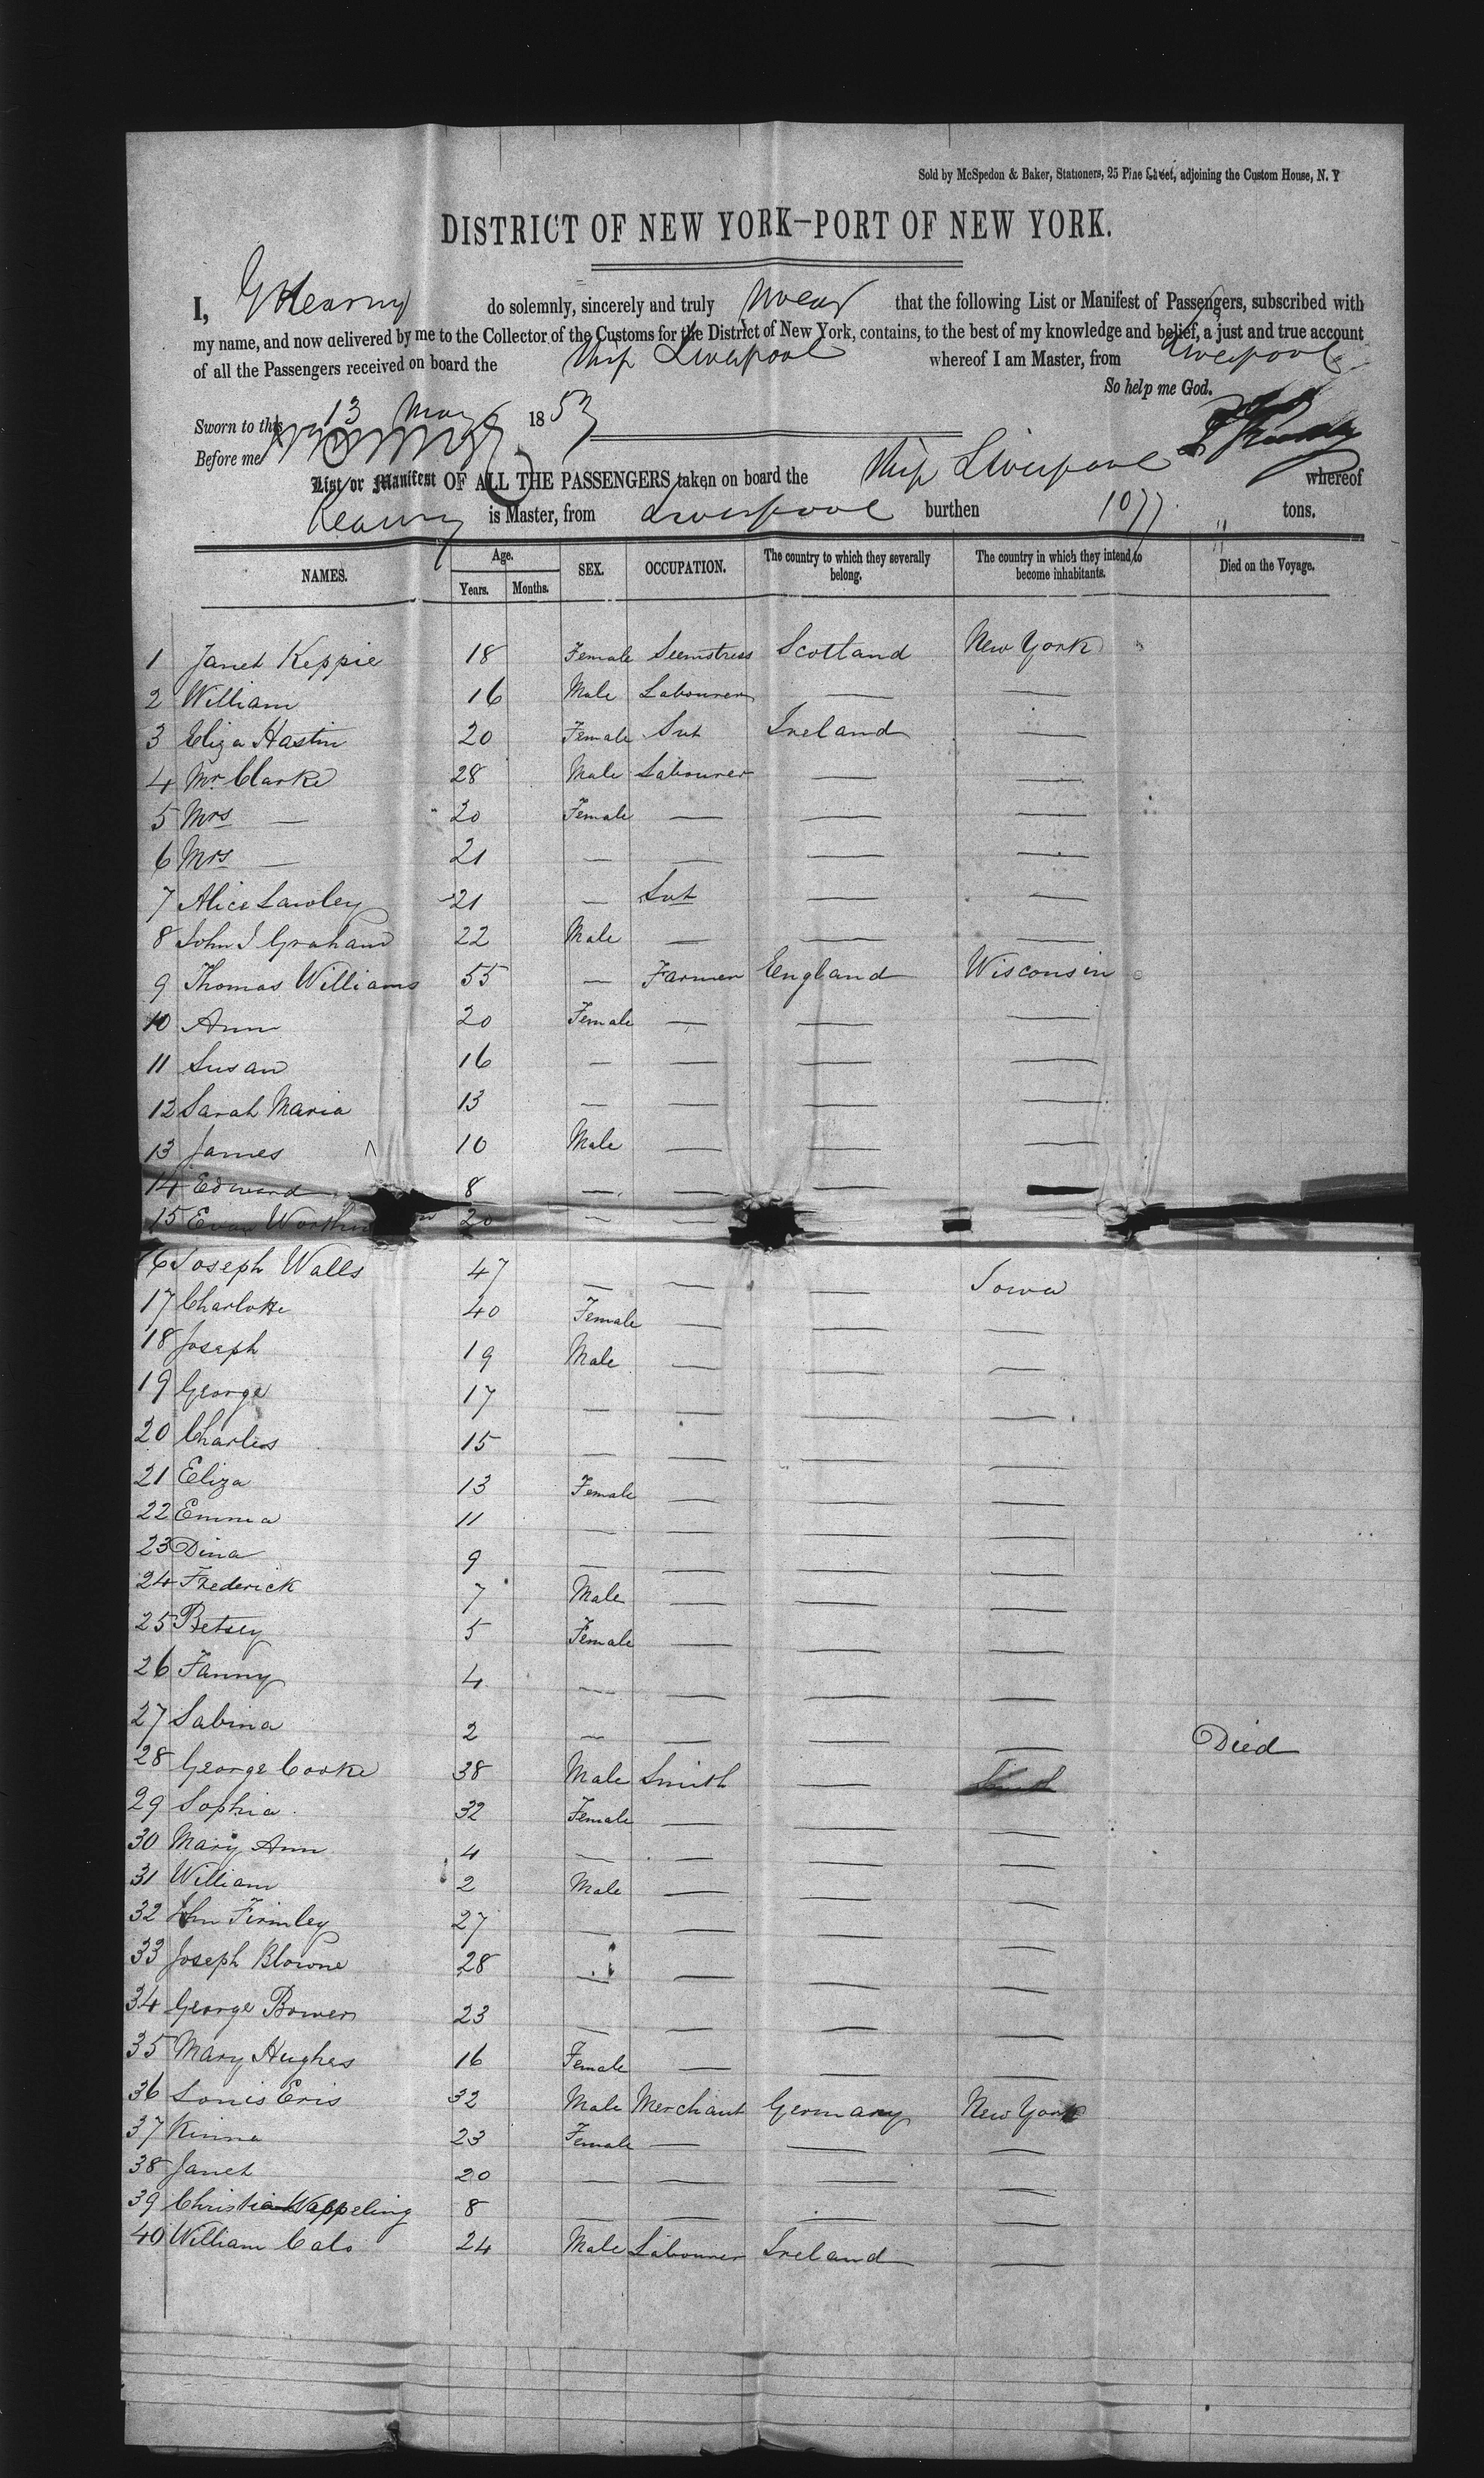 Sold by McSpedon & Baker, Stationers, 25 Pine Street, adjoining the Custom House, N. Y
DISTRICT OF NEW YORK—PORT OF NEW YORK.
I, Kearny do solemnly, sincerely and truly swear that the following List or Manifest of Passengers, subscribed with
my name, and now delivered by me to the Collector of the Customs for the District of New York, contains, to the best of my knowledge and belief, a just and true account
of all the Passengers received on board the Ship Liverpool whereof I am Master, from Liverpool
So help me God.
Sworn to this 13 May 1853
Before me
List or Manifest OF ALL THE PASSENGERS taken on board the Ship Liverpool whereof
Kearny is Master, from Liverpool burthen 1077 tons.
NAMES. Age. Years. Months. SEX. OCCUPATION. The country to which they severally belong. The country in which they intend to become inhabitants. Died on the Voyage.
1 Janet Keppie 18 Female Seemstress Scotland New York
2 William 16 Male Labourer — —
3 Eliza Hastin 20 Female Svt Ireland —
4 Mr. Clarke 28 Male Labourer — —
5 Mrs — 20 Female — — —
6 Mrs — 21 — — — —
7 Alice Lawley 21 — Svt — —
8 John J Graham 22 Male — — —
9 Thomas Williams 55 — Farmer England Wisconsin
10 Ann 20 Female — — —
11 Susan 16 — — — —
12 Sarah Maria 13 — — — —
13 James 10 Male — — —
14 Edward 8 — — —
15 Evan 20 — —
16 Joseph Walls 47 — — — Iowa
17 Charlotte 40 Female — — —
18 Joseph 19 Male — — —
19 George 17 — — — —
20 Charles 15 — — — —
21 Eliza 13 Female — — —
22 Emma 11 — — — —
23 Dina 9 — — — —
24 Frederick 7 Male — — —
25 Betsey 5 Female — — —
26 Fanny 4 — — — —
27 Sabina 2 — — — — Died
28 George Cooke 38 Male Smith — Smith
29 Sophia 32 Female — — —
30 Mary Ann 4 — — — —
31 William 2 Male — — —
32 John Firmley 27 — — — —
33 Joseph Blowne 28 — — — —
34 George Bowers 23 — — — —
35 Mary Hughes 16 Female — — —
36 Louis Eris 32 Male Merchant Germany New York
37 Kinna 23 Female — — —
38 Janet 20 — — — —
39 Christian Wappeling 8 — — — —
40 William Calo 24 Male Labourer Ireland —